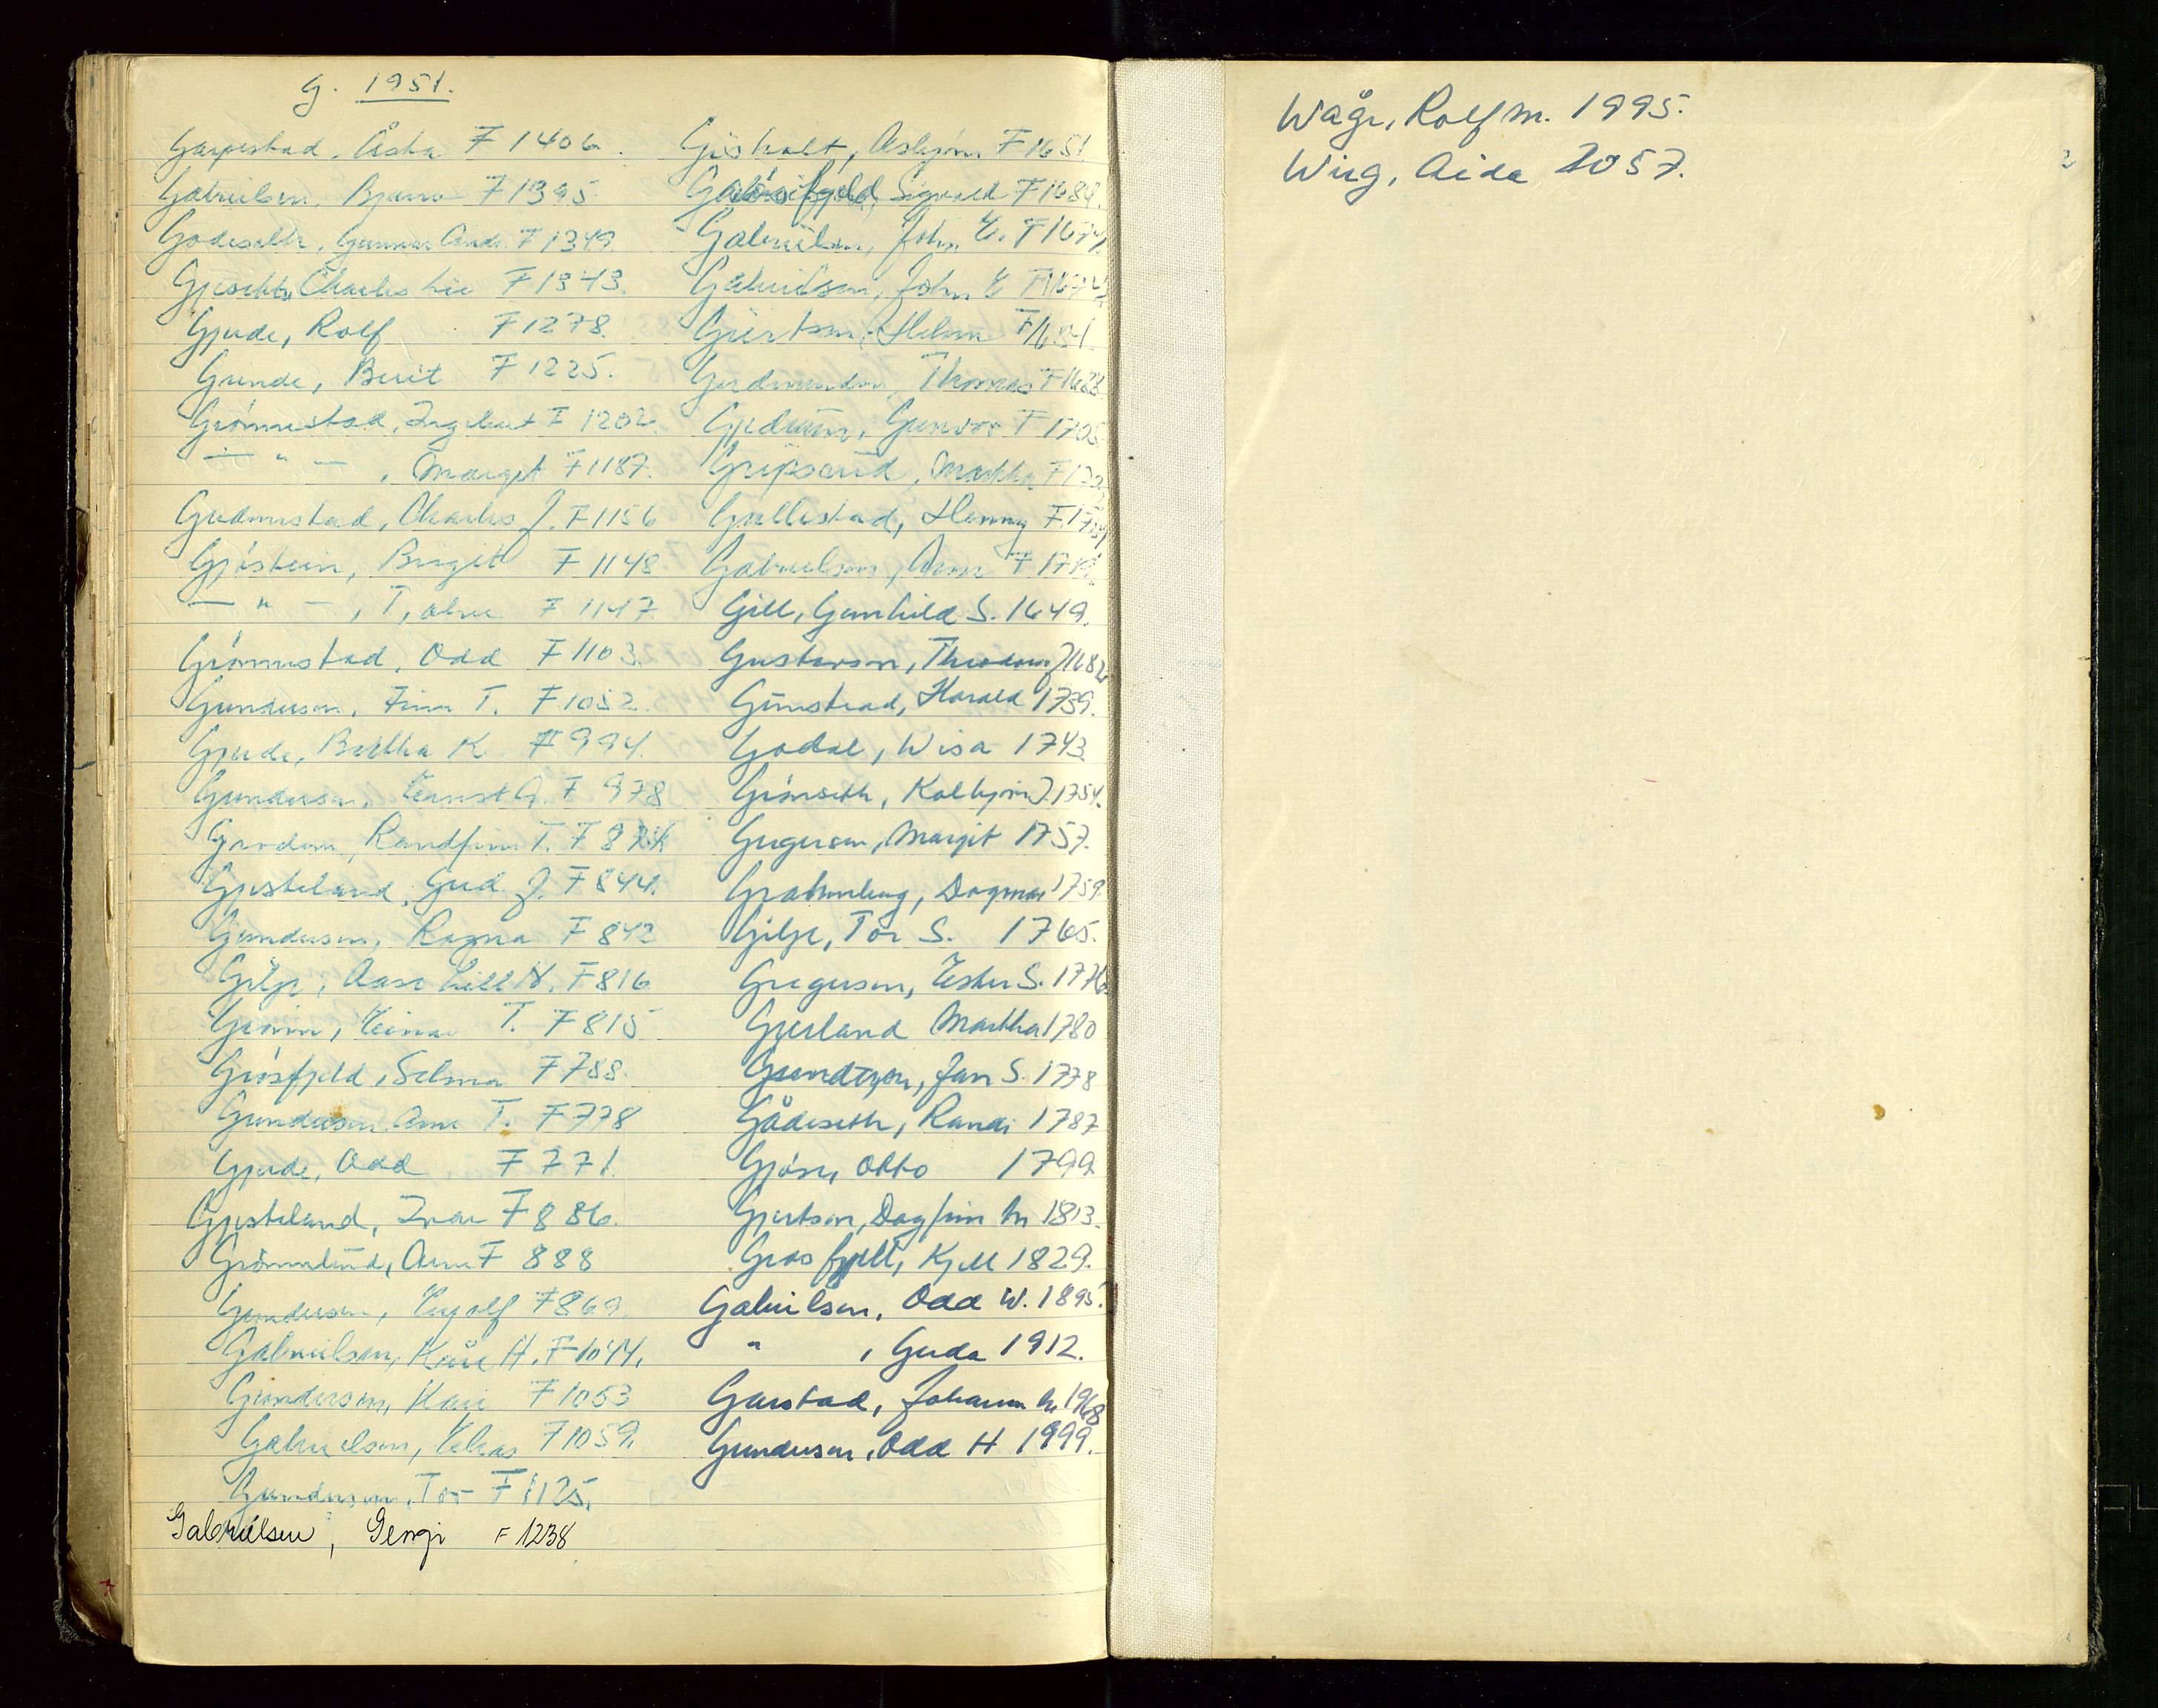 G. 1951.
Garpestad, Åsta F 1406.
Gabrielsen, Bjarne F 1395.
Godeseth, Gunnar Andr. F 1349
Gjeseth, Charles Lie F 1343.
Gjerde, Rolf F 1278.
Grende, Berit F 1225.
Grønnestad, Ingebret F 1202.
— " — , Margit F 1187.
Gudmestad, Charles J. F 1156
Gjøstein, Birgit F 1148
— " — , T, F 1147.
Grønnestad, Odd F 1103.
Gundersen, Finn T. F 1052.
Gjerde, Bertha K. F 994.
Gundersen, Ernst G. F 978
Grodem, Randfinn T. F
Gjesteland, Gud. J. F 844.
Gundersen, Ragna F 842
Gilje, Aase Lill N. F 816
Grønn, Einar T. F 815
Grøsfjeld, Selma F 788.
Gundersen Arne T. F 778
Gjerde, Odd F 771.
Gjesteland, Ivar F 886.
Grønnelund, Arne F 888
Gundersen, Ingolf F 869.
Gabrielsen, Kåre H. F 1044.
Gundersen, Kari F 1053
Gabrielsen, F 1059.
Gundersen, Tor F 1125.
Gabrielsen, F 1238
Gisholt, Asbjørn F 1651
Sigvald F 1684.
Gabrielsen, John E. F 1674.
Gabrielsen, John E F 1674
Giertsen, Helen F
Gudmundsen, Thomas F 1688
Gjedrem, Gunvor F 1705.
Gripsrud, Martha F
Gullestad, Henny F.
Gabrielsen, Arne F
Gill, Gunhild S. 1649.
Gustavson, Theodor J 1682
Grimstead, Harald 1739.
Godal, Wisa 1743.
Grønseth, Kolbjørn J. 1754.
Gregersen, Margit 1757.
Dagmar 1759.
Gilje, Tor S. 1765.
Gregersen, Ester S. 1776
Gjerland Martha 1780
Jan S. 1778
Gådeseth, Randi 1787
Gjøse, Otto 1799.
Gjertsen, Dagfinn M 1813.
Grosfjell, Kjell 1829.
Gabrielsen, Odd W. 1895.
" , Gerda 1912.
Garstad, Johannes M 1968
Gundersen, Odd H 1999.
Wåge, Rolf M. 1995.
Wiig, Aida 2057.